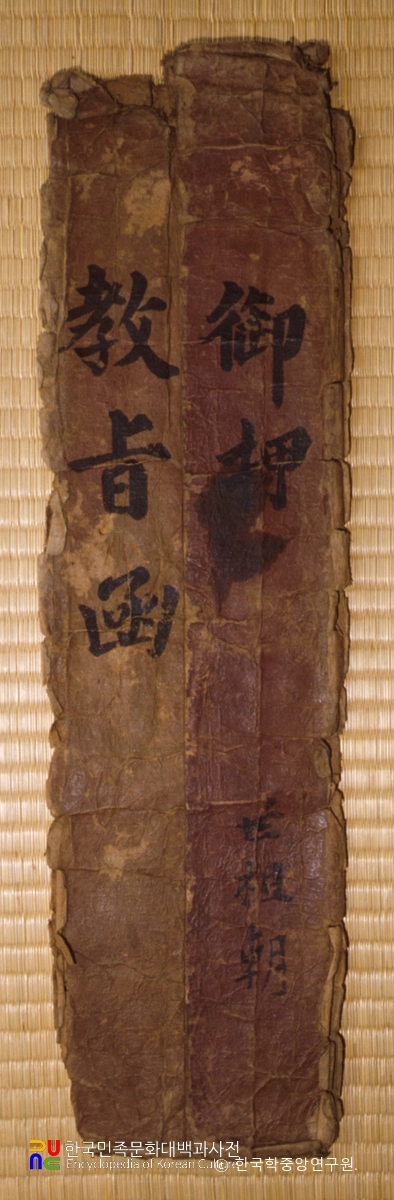 御押
世祖朝
教旨函
한국민족문화대백과사전
Encyclopedia of Korean Culture
© 한국학중앙연구원.